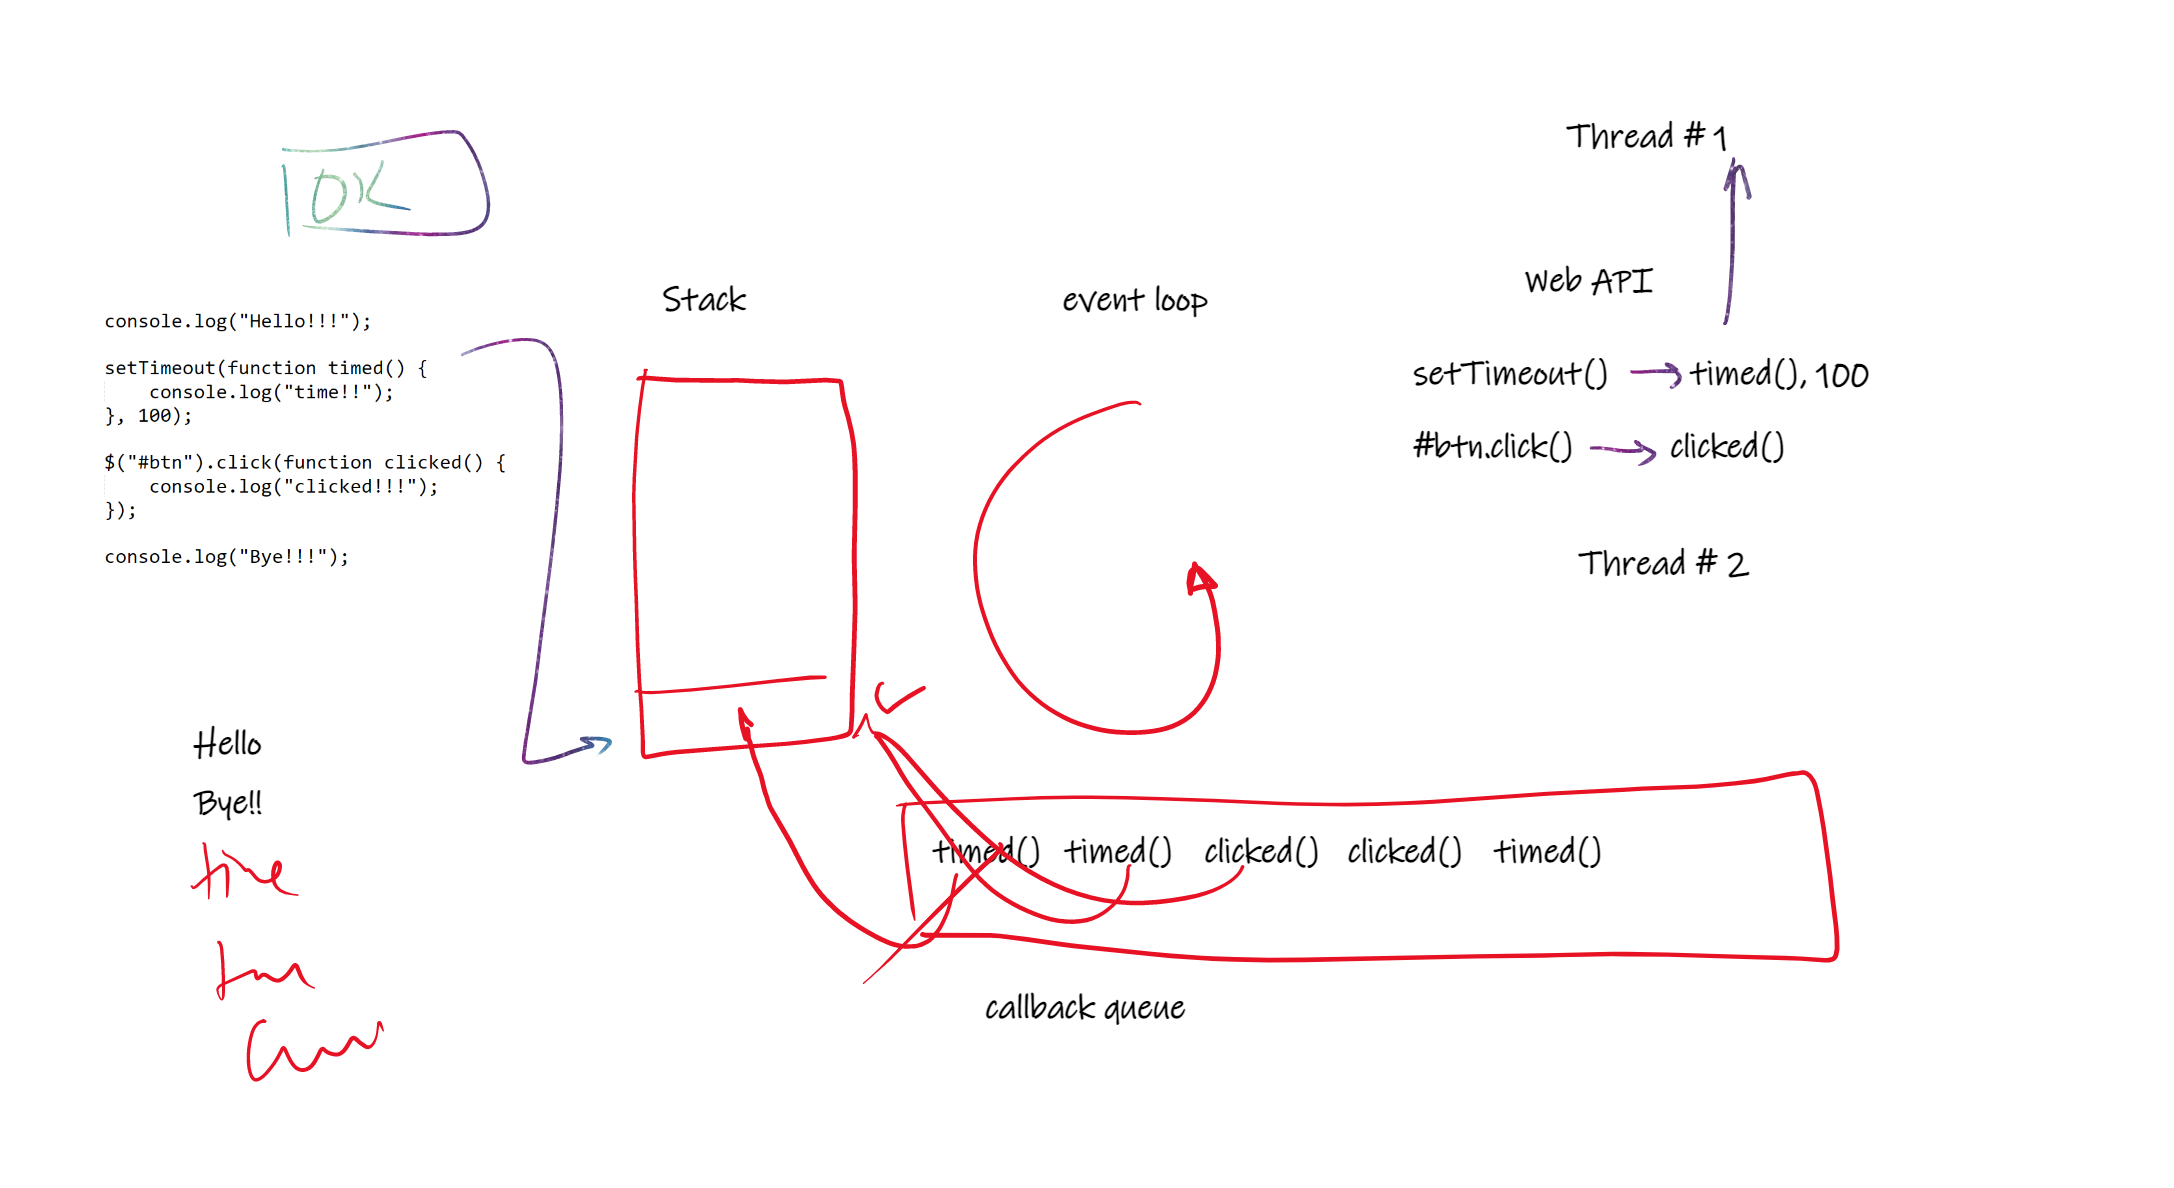 OK
console.log("Hello!!!");
setTimeout(function timed() {
    console.log("time!!");
}, 100);
$("#btn").click(function clicked() {
    console.log("clicked!!!");
});
console.log("Bye!!!");
Hello
Bye!!
time
Stack
event loop
Thread #1
Web API
setTimeout() timed(), 100
#btn.click() clicked()
Thread #2
timed() timed() clicked() clicked() timed()
callback queue